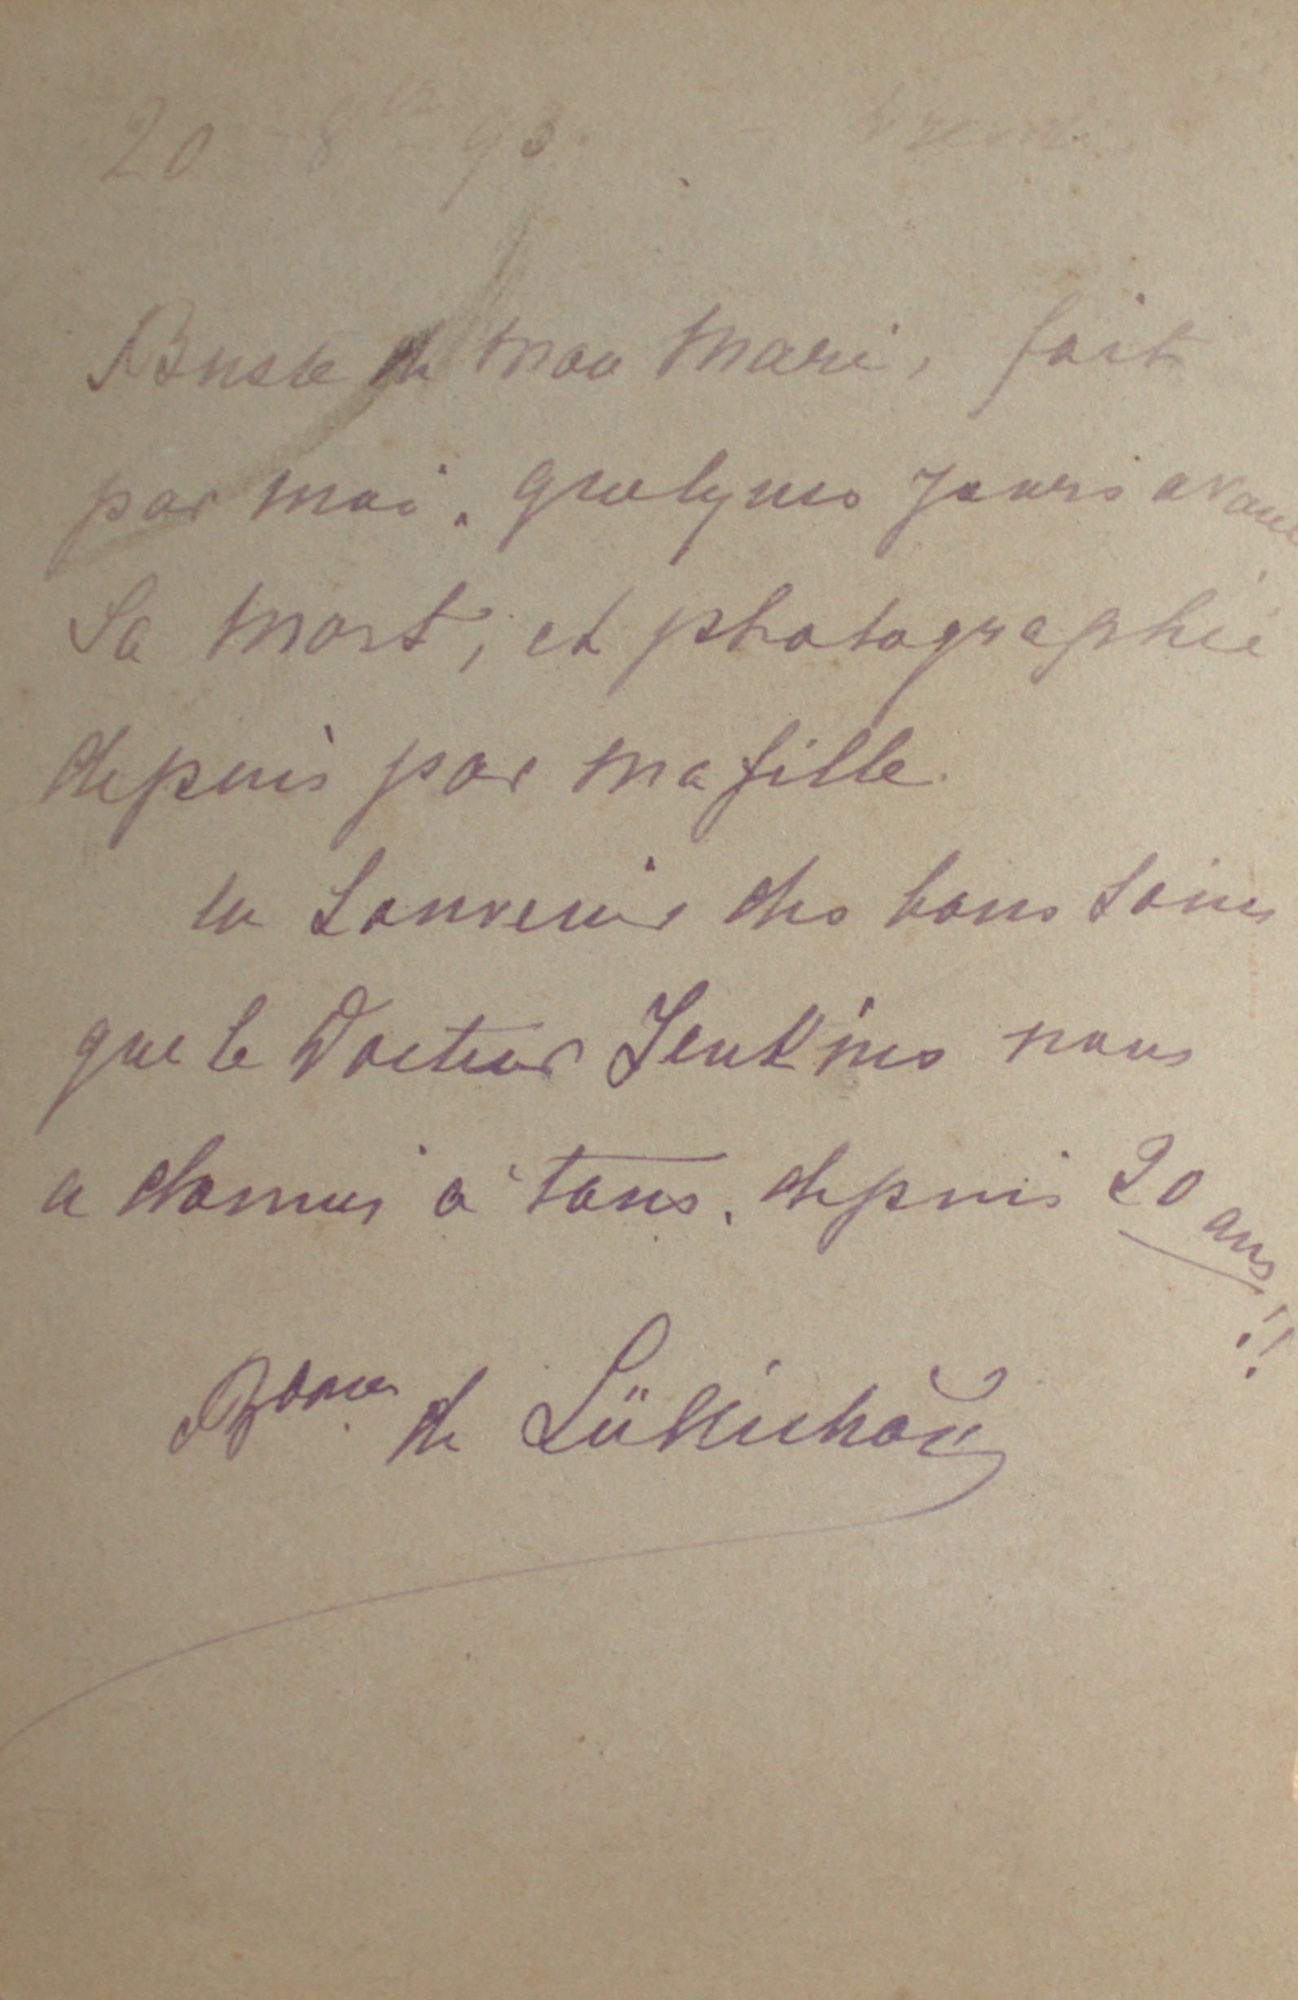 20 8bre 93.
Buste de mon mari, fait
par moi. quelques jours avant
sa mort, et photographié
depuis par ma fille.
en souvenir des bons soins
que le Docteur Jenkins nous
a donnés à tous, depuis 20 ans!!
Bonne de Lüttichaü